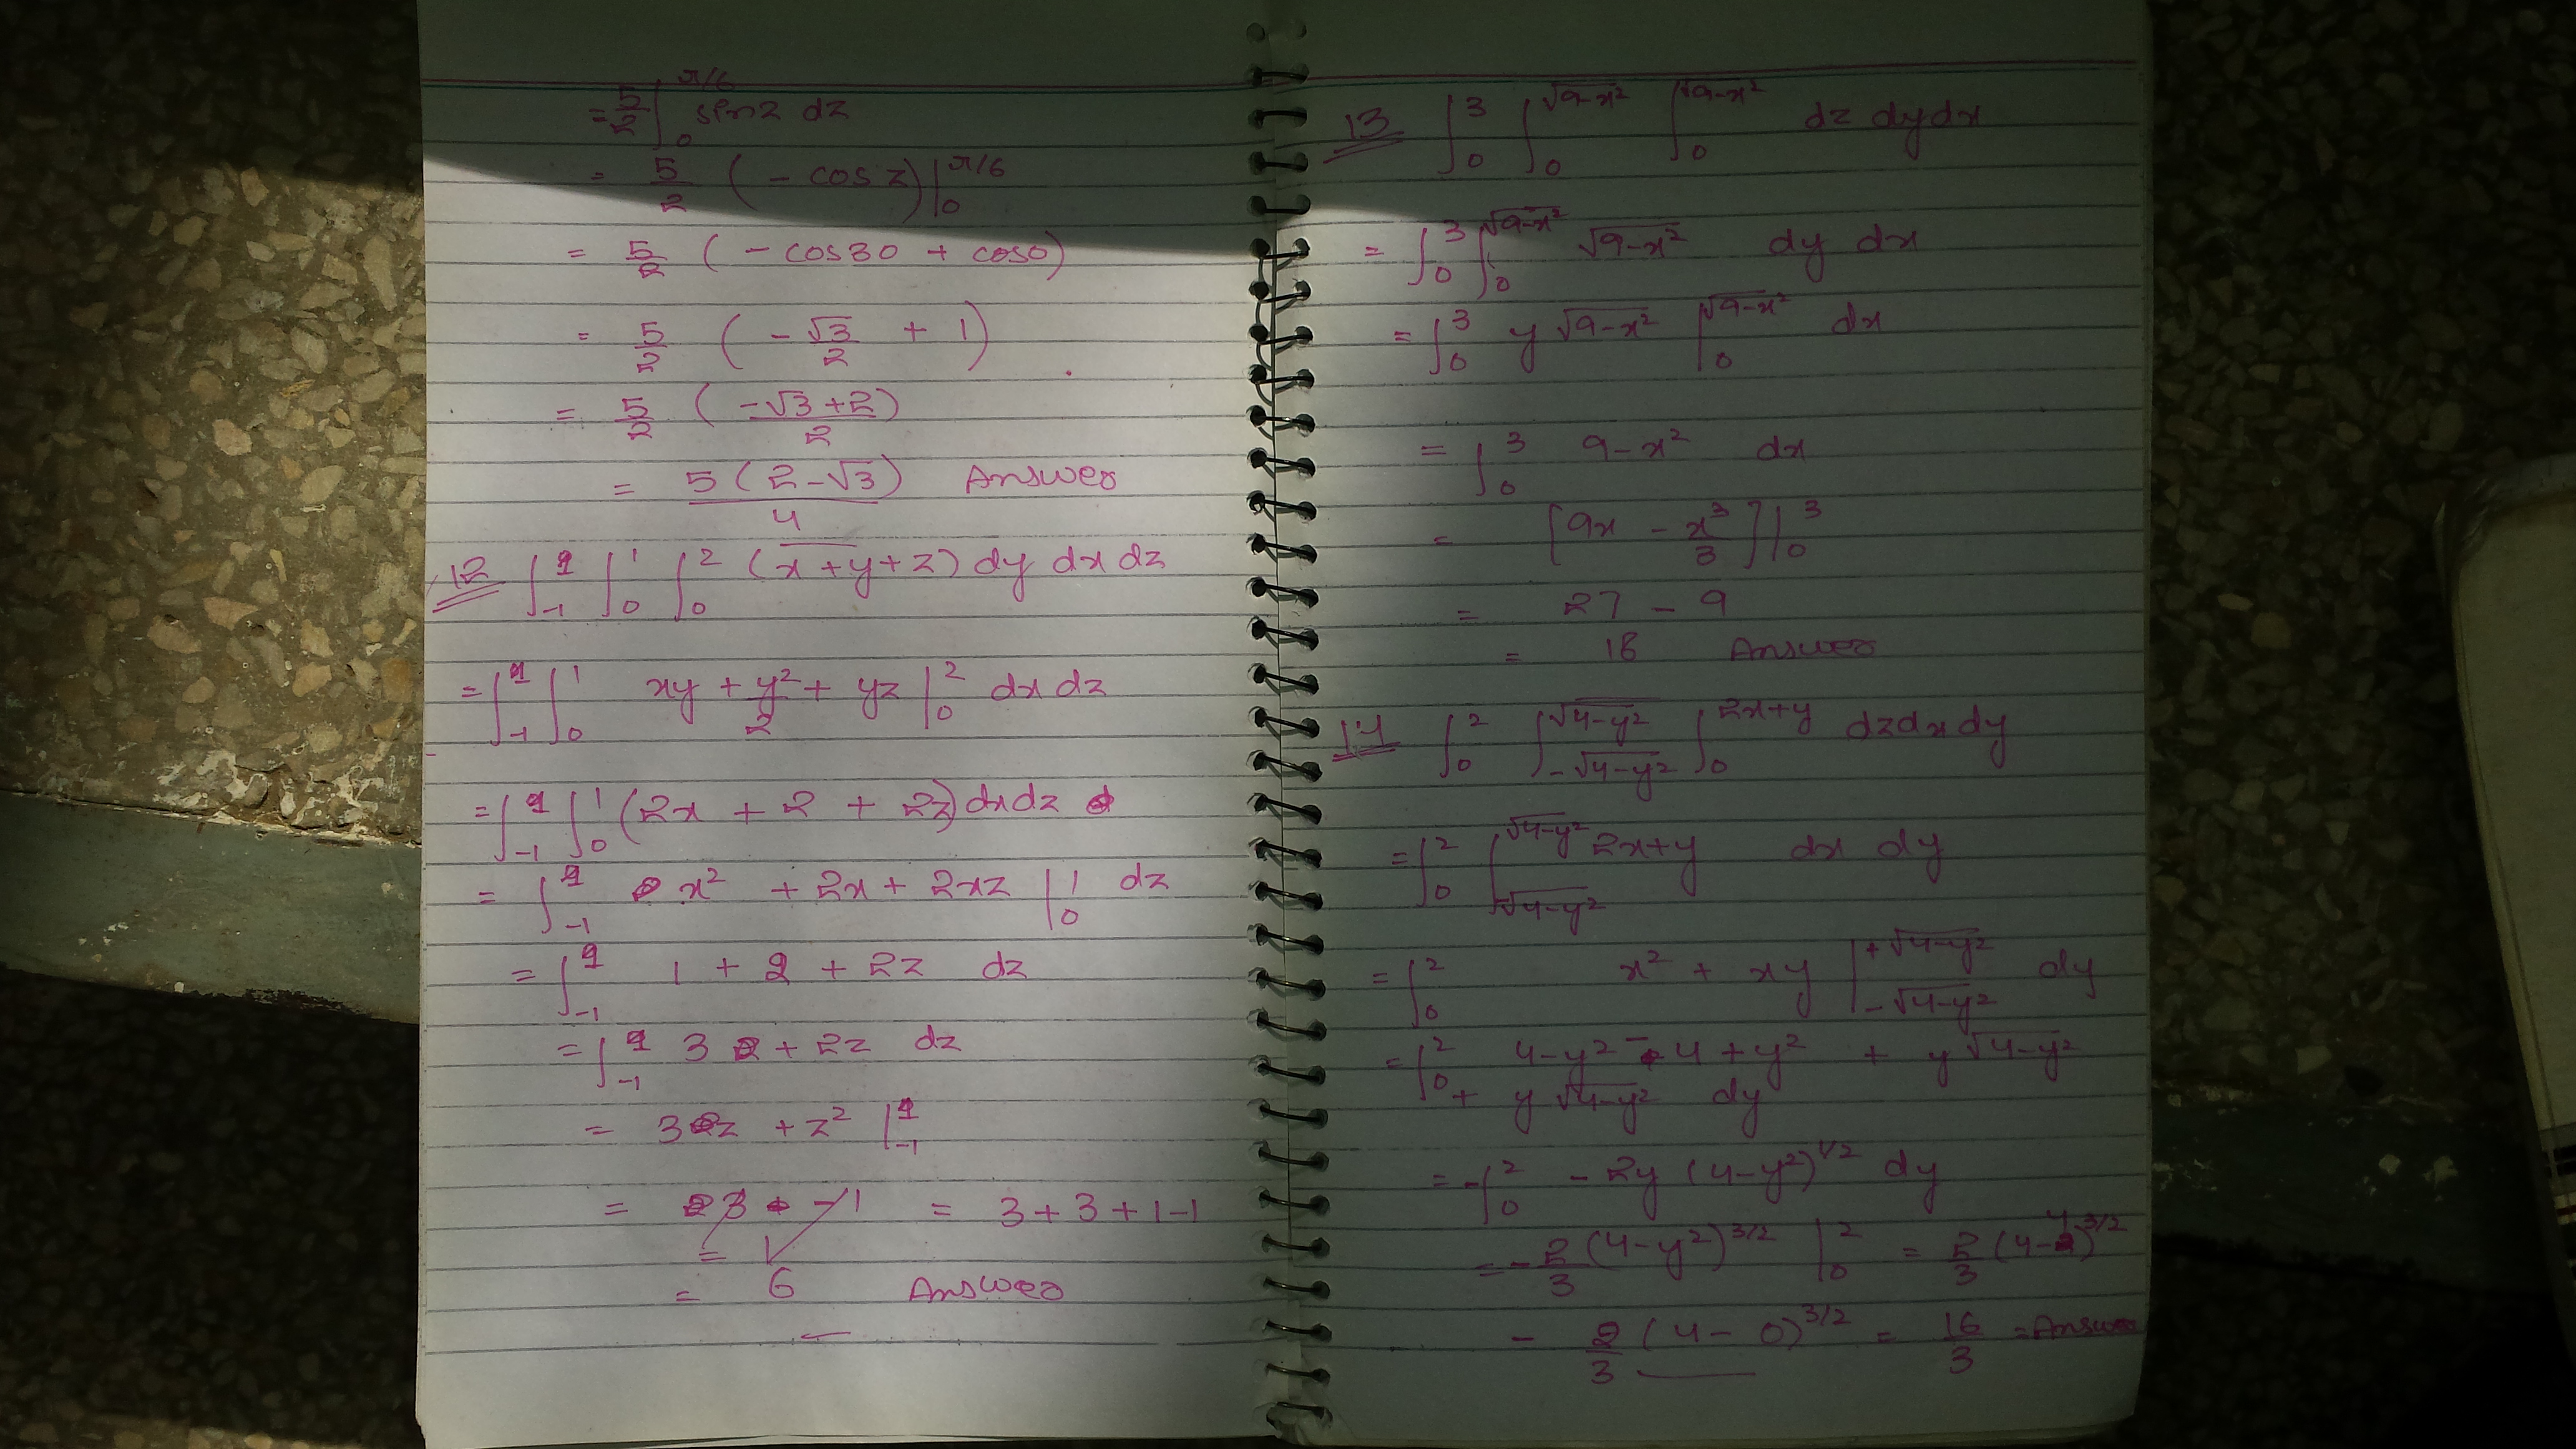 = 5/2 ∫₀^π/6 sin z dz
= 5/2 (- cos z)|₀^π/6
= 5/2 (- cos30 + cos0)
= 5/2 (- √3/2 + 1)
= 5/2 (-√3+2)/2
= 5(2-√3)/4 Answer
12 ∫₋₁^1 ∫₀^1 ∫₀^2 (x+y+z) dy dx dz
= ∫₋₁^1 ∫₀^1 xy + y²/2 + yz |₀^2 dx dz
= ∫₋₁^1 ∫₀^1 (2x + 2 + 2z) dx dz
= ∫₋₁^1 x² + 2x + 2xz |₀^1 dz
= ∫₋₁^1 1 + 2 + 2z dz
= ∫₋₁^1 3 + 2z dz
= 3z + z² |₋₁^1
= 3 - 1 = 3+3+1-1
= 1
= 6 Answer
13 ∫₀^3 ∫₀^√(9-x²) ∫₀^√(9-x²) dz dy dx
= ∫₀^3 ∫₀^√(9-x²) √(9-x²) dy dx
= ∫₀^3 y √(9-x²) |₀^√(9-x²) dx
= ∫₀^3 9-x² dx
= [9x - x³/3]|₀^3
= 27 - 9
= 18 Answer
14 ∫₀^2 ∫_-√(4-y²)^√(4-y²) ∫₀^2x+y dz dx dy
= ∫₀^2 ∫_-√(4-y²)^√(4-y²) 2x+y dx dy
= ∫₀^2 x² + xy |_-√(4-y²)^+√(4-y²) dy
= ∫₀^2 4-y² - 4 + y² + y√(4-y²)
+ y √(4-y²) dy
= -∫₀^2 - 2y (4-y²)^1/2 dy
= - 2/3 (4-y²)^3/2 |₀^2 = 2/3 (4-4)^3/2
- 2/3 (4-0)^3/2 = 16/3 = Answer